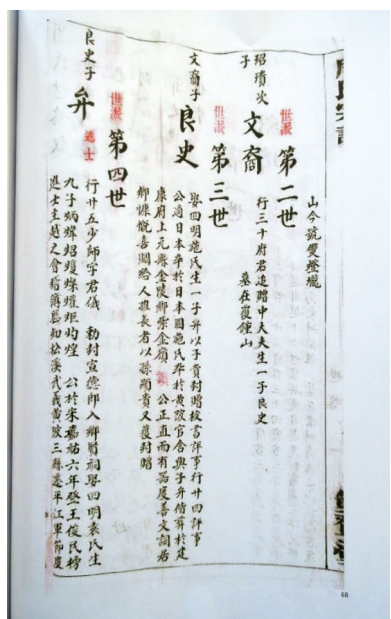 山今號雙燈壠
世派 第二世
紹瓚次子 文裔 行三十府君追贈中大夫生一子良史
墓在霞鍾山
世派 第三世
文裔子 良史 娶四明施氏生一子弁以子貴封贈校書評事行廿四評事
公適日本卒於日本國施氏卒於黃陂官舍與子弁偕葬於建
康府上元縣金陵鄉崇金嶺 公正直而有器度善文詞居
鄉慷慨喜賙給人推長者以孫顯貴又覃封贈
世派 第四世
良史子 弁 進士 行廿五少師字君儀 勅封宣德郎入鄉賢祠娶四明袁氏生
九子炳煇炤燧燦㸌昛灼煌 公於宋嘉祐六年登王俊民榜
進士主越之會稽簿恩知松溪武義黃陂三縣遷平江軍節度
68